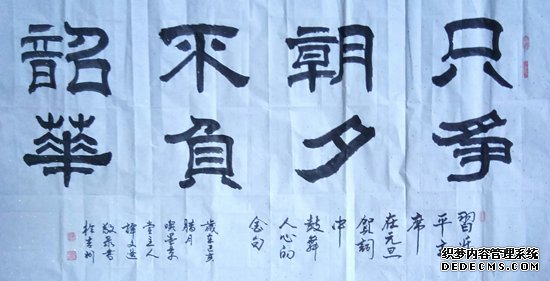 只爭
朝夕
不負
韶華
習近
平主
席
在元旦
賀詞
中
鼓舞
人心的
金句
歲在己亥
腊月
墨
堂主人
文
敬录书
於吉州
织梦内容管理系统
DEDECMS.COM